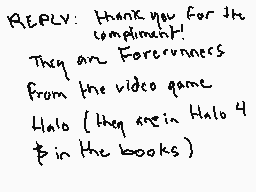 REPLY: thank you for the
compliment!
They are Forerunners
from the video game
Halo (they are in Halo 4
& in the books)